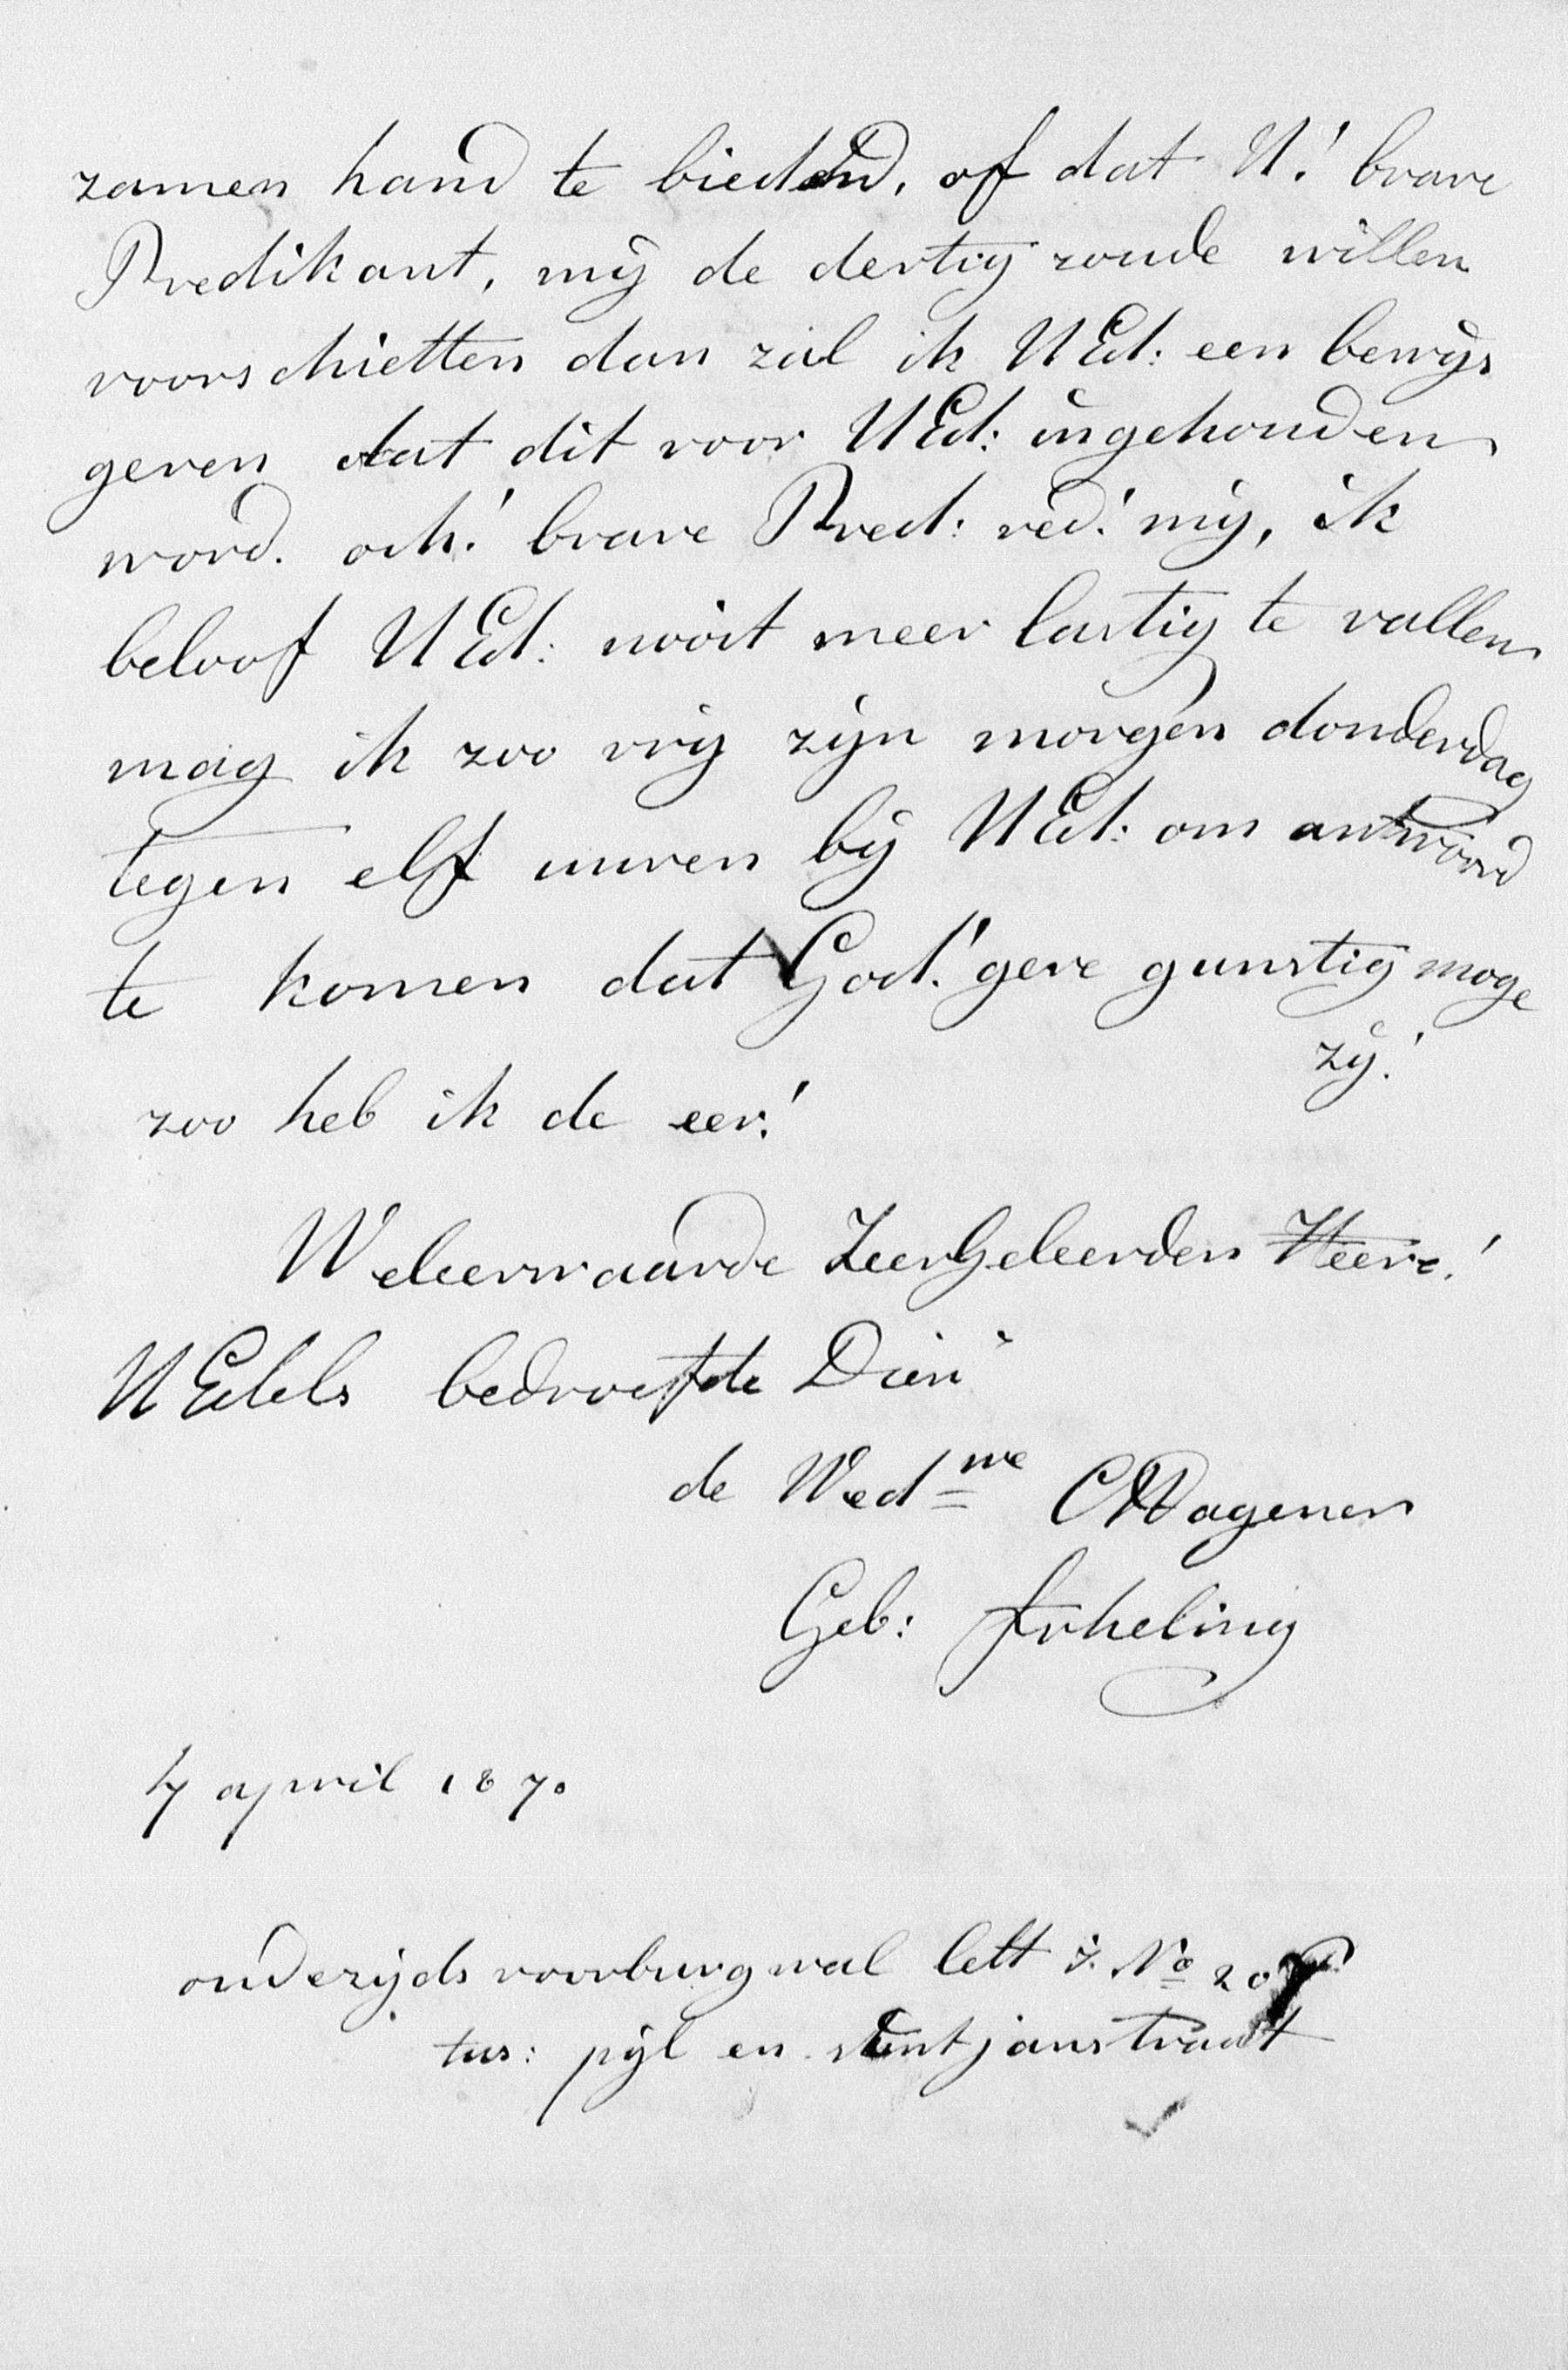 zamen hand te bieden, of dat U! brave
Predikant, mij de dertig zoude willen
voorschietten dan zal ik UEd: een bewijs
geven dat dit voor UEd: ingehouden
word. och! brave Pred: red! mij, ik
beloof UEd: nooit meer lastig te vallen
mag ik zoo vrij zijn morgen donderdag
tegen elf uuren bij UEd: om antwoord
te komen dat God! geve gunstig moge
zij!
zoo heb ik de eer!
Weleerwaarde ZeerGeleerden Heere!
UEdels bedroefde Dien
de Wed<sup>we</sup> CWagener
Geb:
april 1870
oudezijds voorburgwal lett No 20
tus: pijl en sintjanstraat